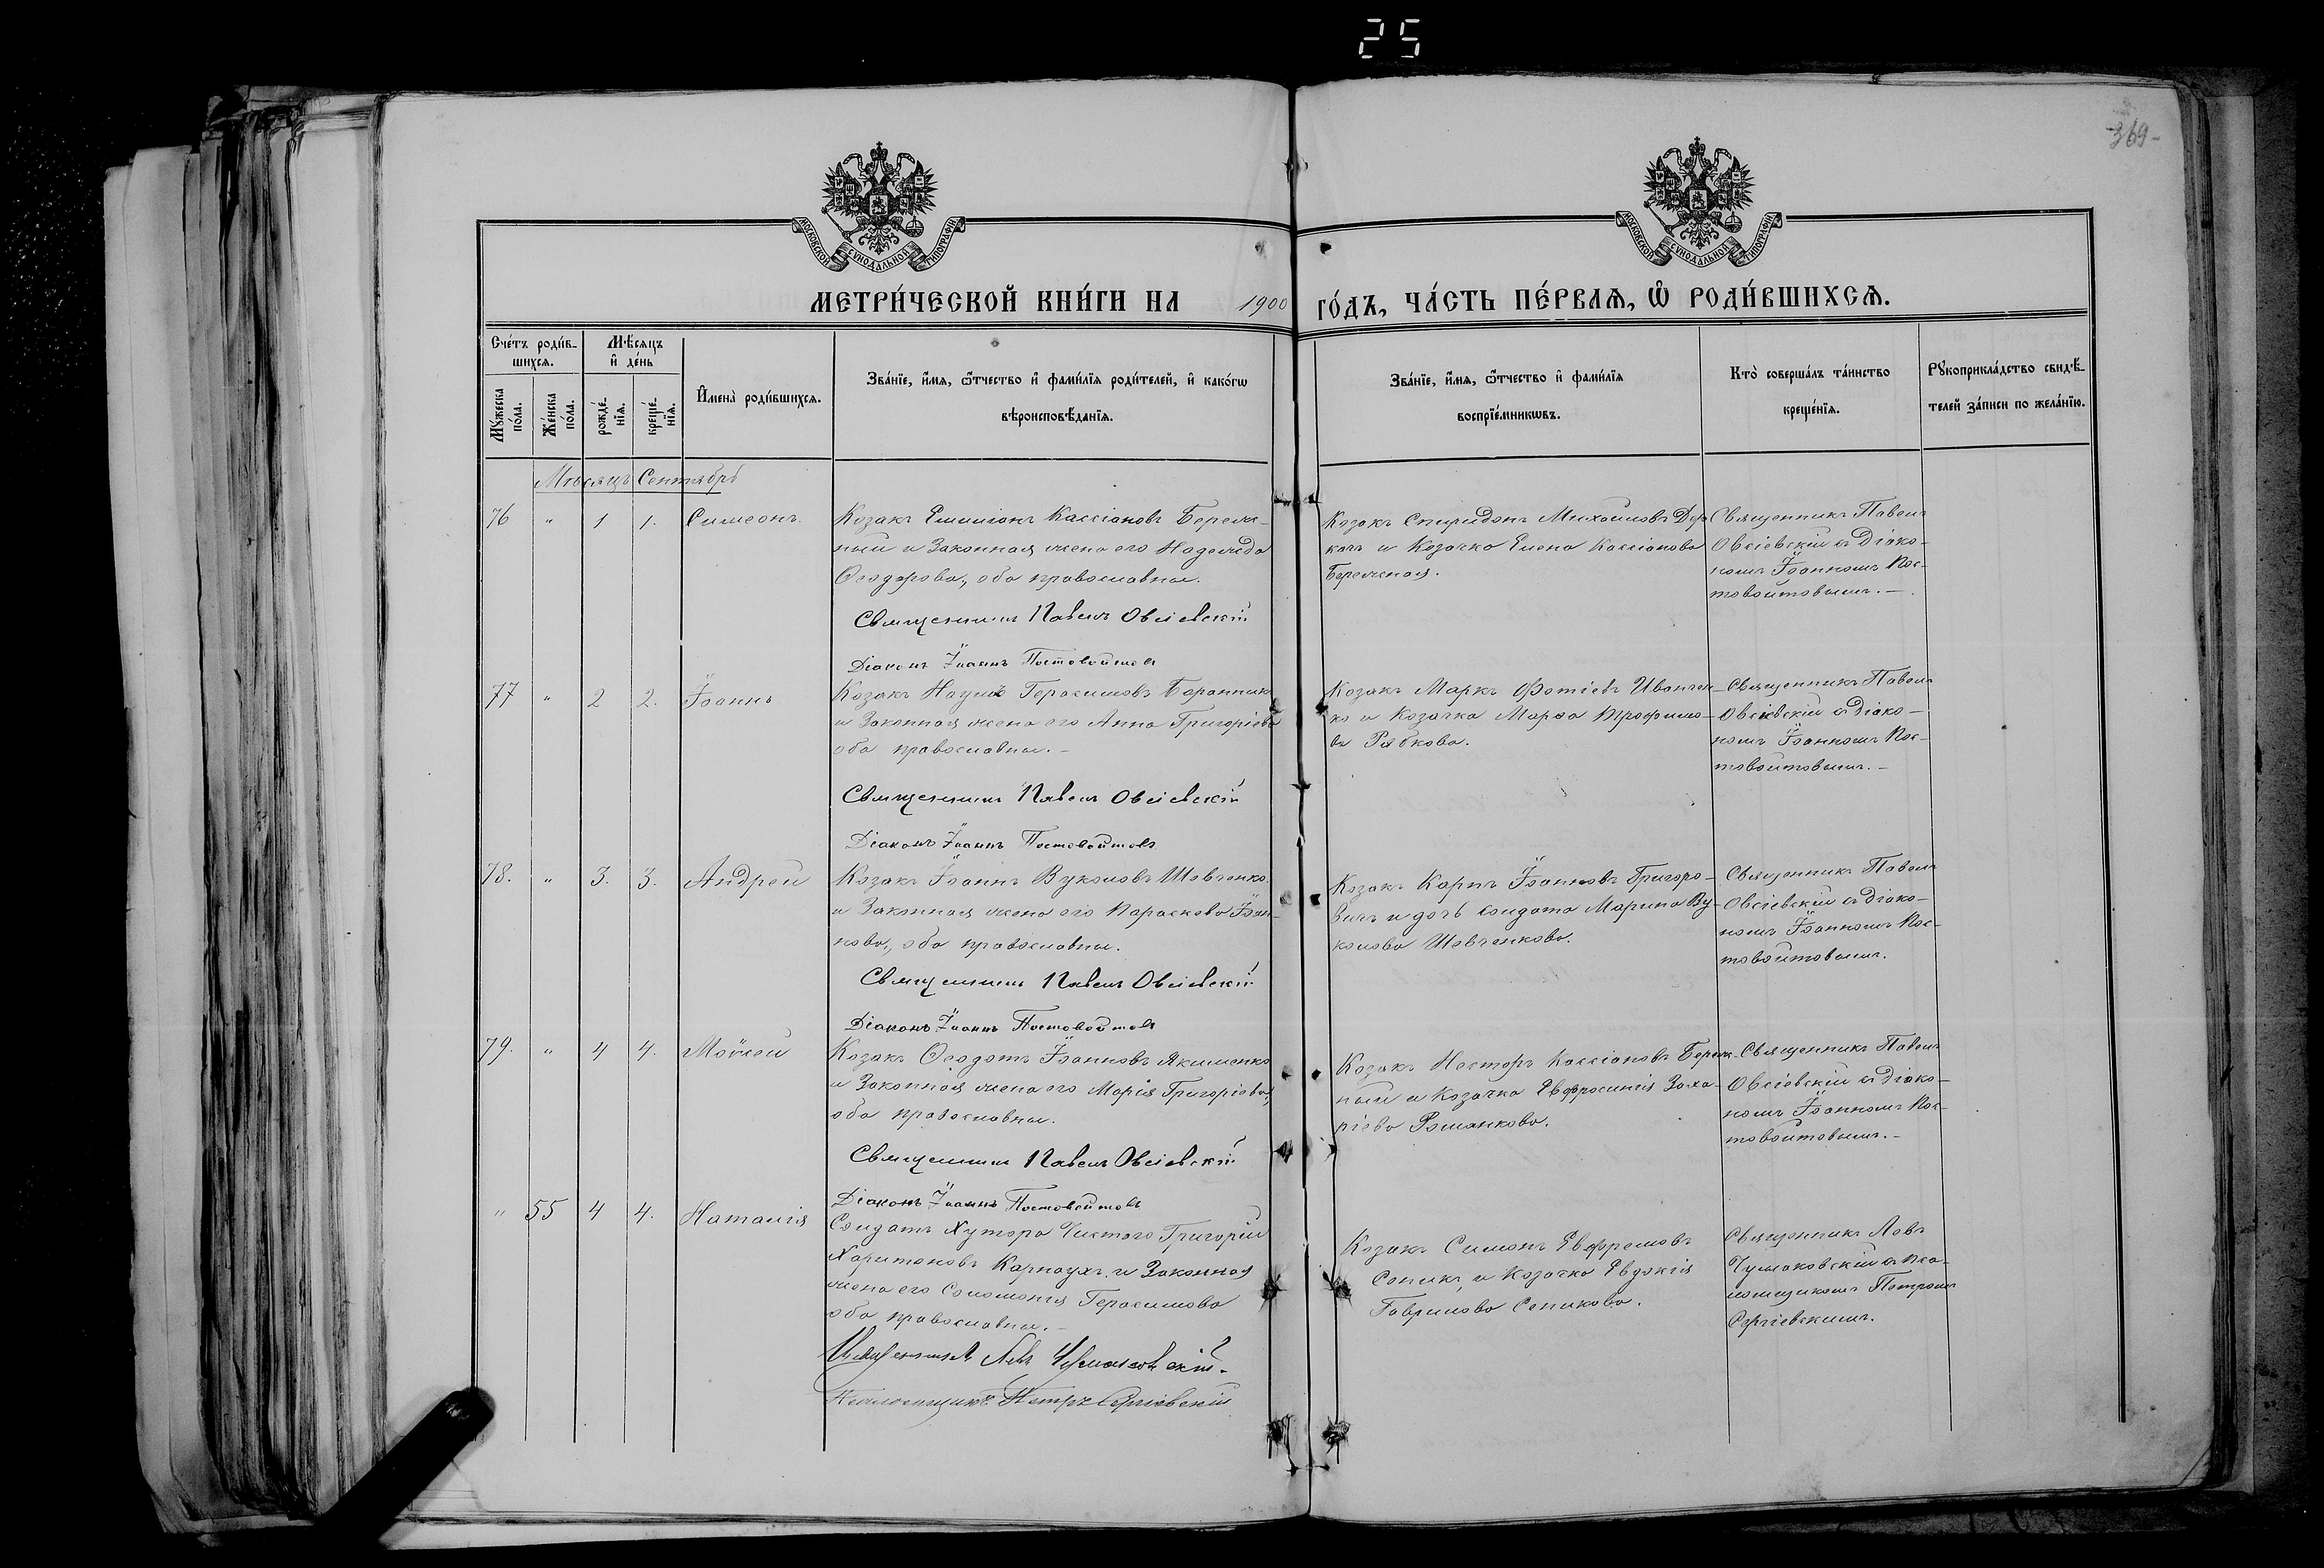 25
369-
МОСКОВСКОЙ СѴНОДАЛЬНОЙ ТИПОГРАФІИ
МОСКОВСКОЙ СѴНОДАЛЬНОЙ ТИПОГРАФІИ
МЕТРИ́ЧЕСКОЙ КНИ́ГИ НА 1900 ГО́ДЪ, ЧА́СТЬ ПЕ́РВАЯ, Ѡ РОДИ́ВШИХСЯ.
Сче́тъ роди́в-
шихся.
Мужеска по́ла.
Же́нска по́ла.
Мѣ́сяцъ и де́нь
рожде́-
нія.
креще́-
нія.
Имена̀ роди́вшихся.
Зва́ніе, и́мя, ѻ́тчество и фами́лія роди́телей, и како́гѡ
вѣроисповѣ́данія.
Зва́ніе, и́мя, ѻ́тчество и фами́лія
воспріе́мникѡвъ.
Кто̀ соверша́лъ та́инство
креще́нія.
Рукоприкла́дство свидѣ́-
телей за́писи по жела́нію.
Мѣсяцъ Сентябрь
76 " 1 1. Симеонъ.
Козакъ Емиліанъ Кассіановъ Береж-
ный и Законная жена его Надежда
Ѳеодорова, оба православны.
Священникъ Павелъ Овсіевскій
Діаконъ Іоаннъ Постовойтовъ
Козакъ Спиридонъ Михаиловъ Дер-
качъ и Козачка Елена Кассіанова
Бережная.
Священникъ Павелъ
Овсіевскій съ Діако-
номъ Іоанномъ Пос-
товойтовымъ. —
77 " 2 2. Іоаннъ
Козакъ Наумъ Герасимовъ Баранник
и Законная жена его Анна Григоріева
оба православны. –
Священникъ Павелъ Овсіевскій
Діаконъ Іоаннъ Постовойтовъ
Козакъ Маркъ Фотіевъ Иванчен-
ко и Козачка Марѳа Трофимо-
ва Рябкова.
Священникъ Павелъ
Овсіевскій съ Діако-
номъ Іоанномъ Пос-
товойтовымъ. –
78. " 3. 3. Андрей
Козакъ Іоаннъ Вуколовъ Шевченко
и Законная жена его Параскева Іоан-
нова, оба православны.
Священникъ Павелъ Овсіевскій
Діаконъ Іоаннъ Постовойтовъ
Козакъ Карпъ Іоанновъ Григоро-
вичъ и дочь солдата Марина Ву-
колова Шевченкова.
Священникъ Павелъ
Овсіевскій съ Діако-
номъ Іоанномъ Пос-
товойтовымъ.
79. " 4 4. Моѵсей
Козакъ Ѳеодотъ Іоанновъ Якименко
и Законная жена его Марія Григоріева,
оба православны.
Священникъ Павелъ Овсіевскій
Діаконъ Іоаннъ Постовойтовъ
Козакъ Несторъ Кассіановъ Береж-
ный и Козачка Евфросинія Заха-
ріева Романкова.
Священникъ Павелъ
Овсіевскій съ Діако-
номъ Іоанномъ Пос-
товойтовымъ. –
" 55 4 4. Наталія
Солдатъ Хутора Чистого Григорій
Харитоновъ Карнаухъ и Законная
жена его Соломонія Герасимова
оба православны. –
Священникъ Левъ Чумаковскій.
Псаломщикъ Петръ Сергіевскій
Козакъ Симонъ Евфремовъ
Сепикъ, и Козачка Евдокія
Гаврилова Сепикова.
Священникъ Левъ
Чумаковскій съ Пса-
ломщикомъ Петромъ
Сергіевскимъ.